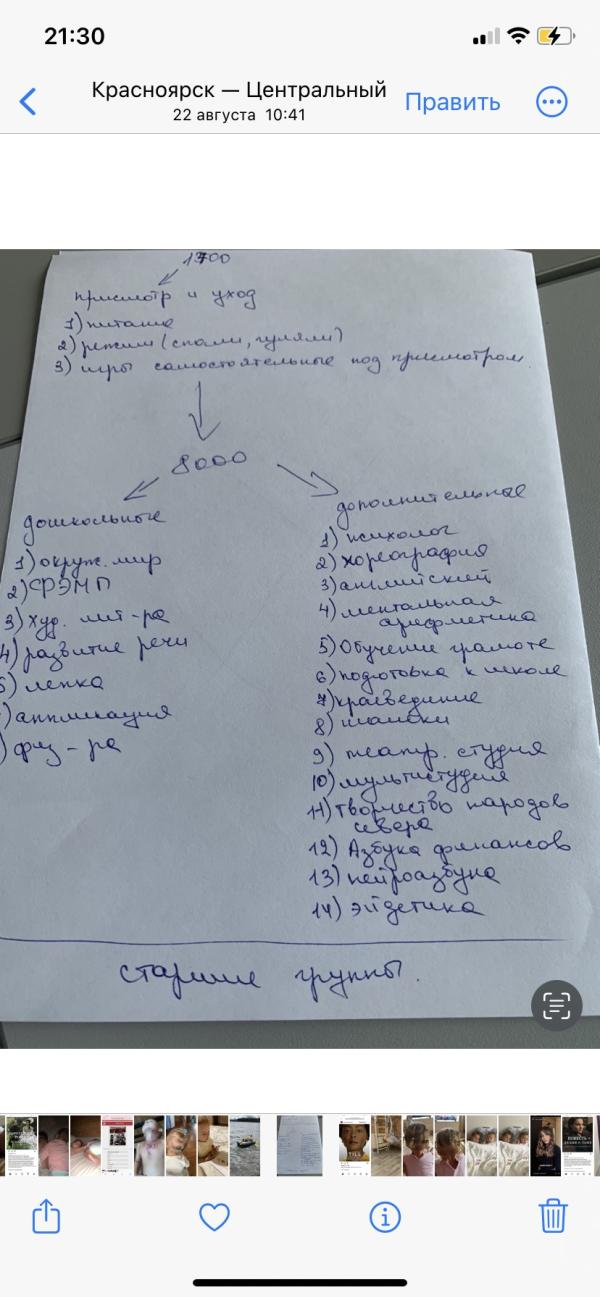 21:30
Красноярск — Центральный
22 августа 10:41
Править
1700
присмотр и уход
1) питание
2) режим (спали, гуляли)
3) игры самостоятельные под присмотром
8000
дошкольные
1) окруж. мир
2) ФЭМП
3) худ. лит-ра
4) развитие речи
5) лепка
) аппликация
) физ-ра
дополнительные
1) психолог
2) хореография
3) английский
4) ментальная
арифметика
5) Обучение грамоте
6) подготовка к школе
7) краеведение
8)
9) театр. студия
10) мультистудия
11) творчество народов
севера
12) Азбука финансов
13) нейроазбука
14) эйдетика
старшие группы.